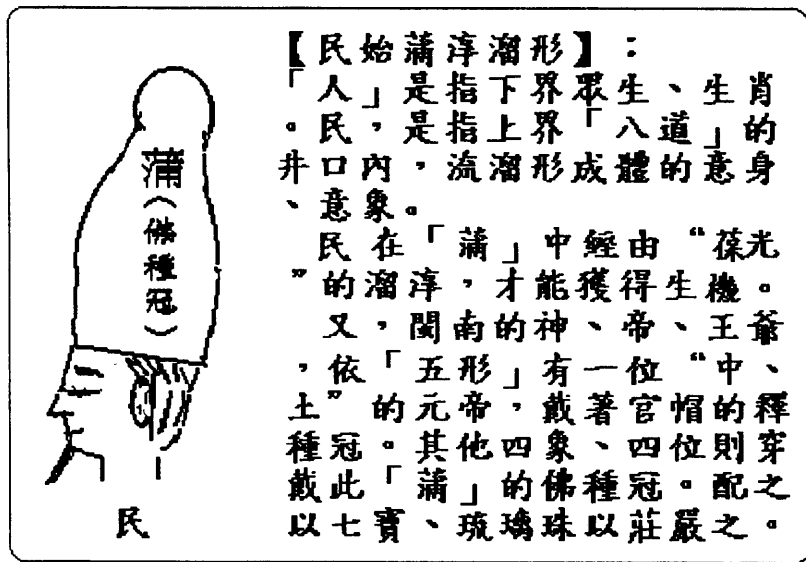 【民始蒲淳溜形】：
「人」是指下界眾生、生肖
。民，是指上界「八道」的
井口內，流溜形成體的意身
、意象。
民在「蒲」中經由“葆光
”的溜淳，才能獲得生機。
又，閩南的神、帝、王爺
，依「五形」有一位“中、
土”的元帝，戴著官帽的釋
種冠。其他四象、四位則穿
戴此「蒲」的佛種冠。配之
以七寶、琉璃珠以莊嚴之。
蒲（佛種冠）
民